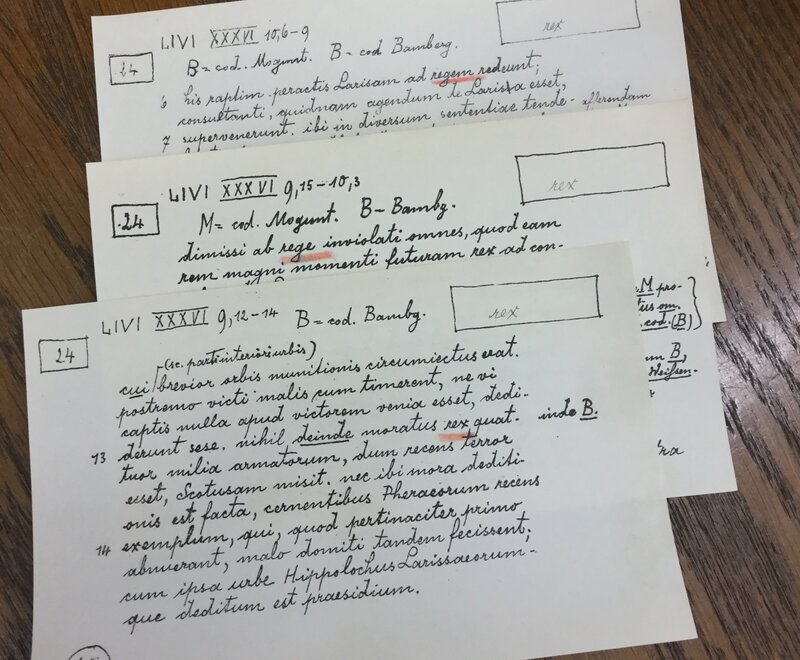 LIVI XXXVI 10,6-9
rex
24
B = cod. Mogunt. B = cod Bamberg.
6 his raptim peractis Larisam ad regem redeunt;
consultanti, quidnam agendum de Larissa esset,
7 supervenerunt. ibi in diversum sententiae tende- afferendam
LIVI XXXVI 9,15-10,3
rex
24
M = cod. Mogunt. B = Bambg.
dimissi ab rege inviolati omnes, quod eam
rem magni momenti futuram rex ad con-
M pro-
cod. (B)
B,
LIVI XXXVI 9,12-14 B = cod. Bambg.
rex
24
(sc. parti interiori urbis)
cui brevior orbis munitionis circumiectus erat.
postremo victi malis cum timerent, ne vi
captis nulla apud victorem venia esset, dedi-
13 derunt sese. nihil deinde moratus rex quat- inde B.
tuor milia armatorum, dum recens terror
esset, Scotusam misit. nec ibi mora dediti-
onis est facta, cernentibus Pheraeorum recens
14 exemplum, qui, quod pertinaciter primo
abnuerant, malo domiti tandem fecissent;
cum ipsa urbe Hippolochus Larissaeorum-
que deditum est praesidium.